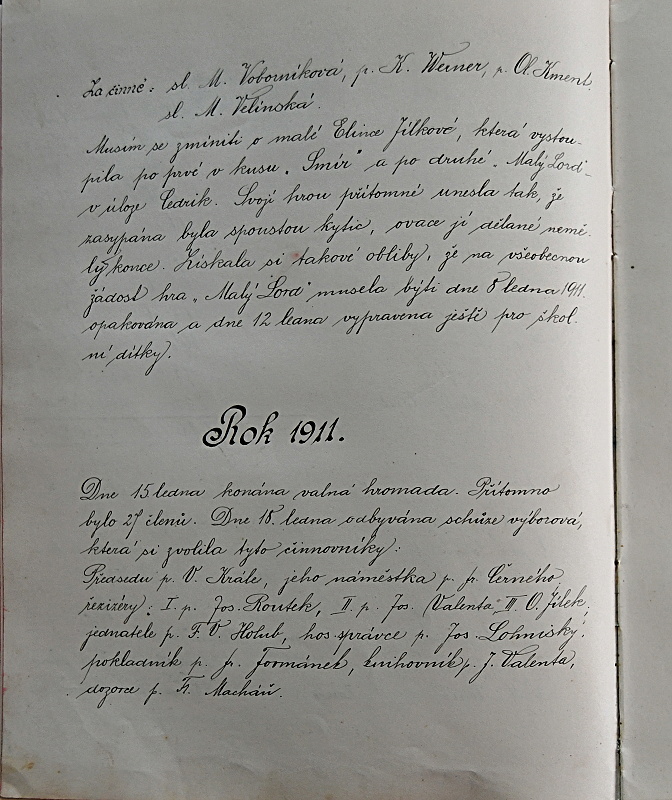 Za činné: sl. M. Voborníková, p. K. Weiner, p. Ol. Kment.
sl. M. Velínská.
Musím se zmíniti o malé Elince Jílkové, která vystou-
pila po prvé v kusu „Smír" a po druhé „Malý Lord"
v úloze Cedrik. Svojí hrou přítomné unesla tak, že
zasypána byla spoustou kytic, ovace jí dělané nemě-
ly konce. Získala si takové obliby, že na všeobecnou
žádost hra „Malý Lord" musela býti dne 8 ledna 1911.
opakována a dne 12 ledna vypravena ještě pro škol-
ní dítky.
Rok 1911.
Dne 15 ledna konána valná hromada. Přítomno
bylo 27 členů. Dne 18. ledna odbyvána schůze výborová,
která si zvolila tyto činnovníky:
Předsedu p. V. Krále, jeho náměstka p. fr. Černého,
režizéry: I. p. Jos. Routek, II. p. Jos. Valenta, III. O. Jílek,
jednatele p. F. V. Holub, hos. správce p. Jos. Lohniský,
pokladník p. fr. Formánek, knihovník p. J. Valenta,
dozorce p. Fr. Macháň.